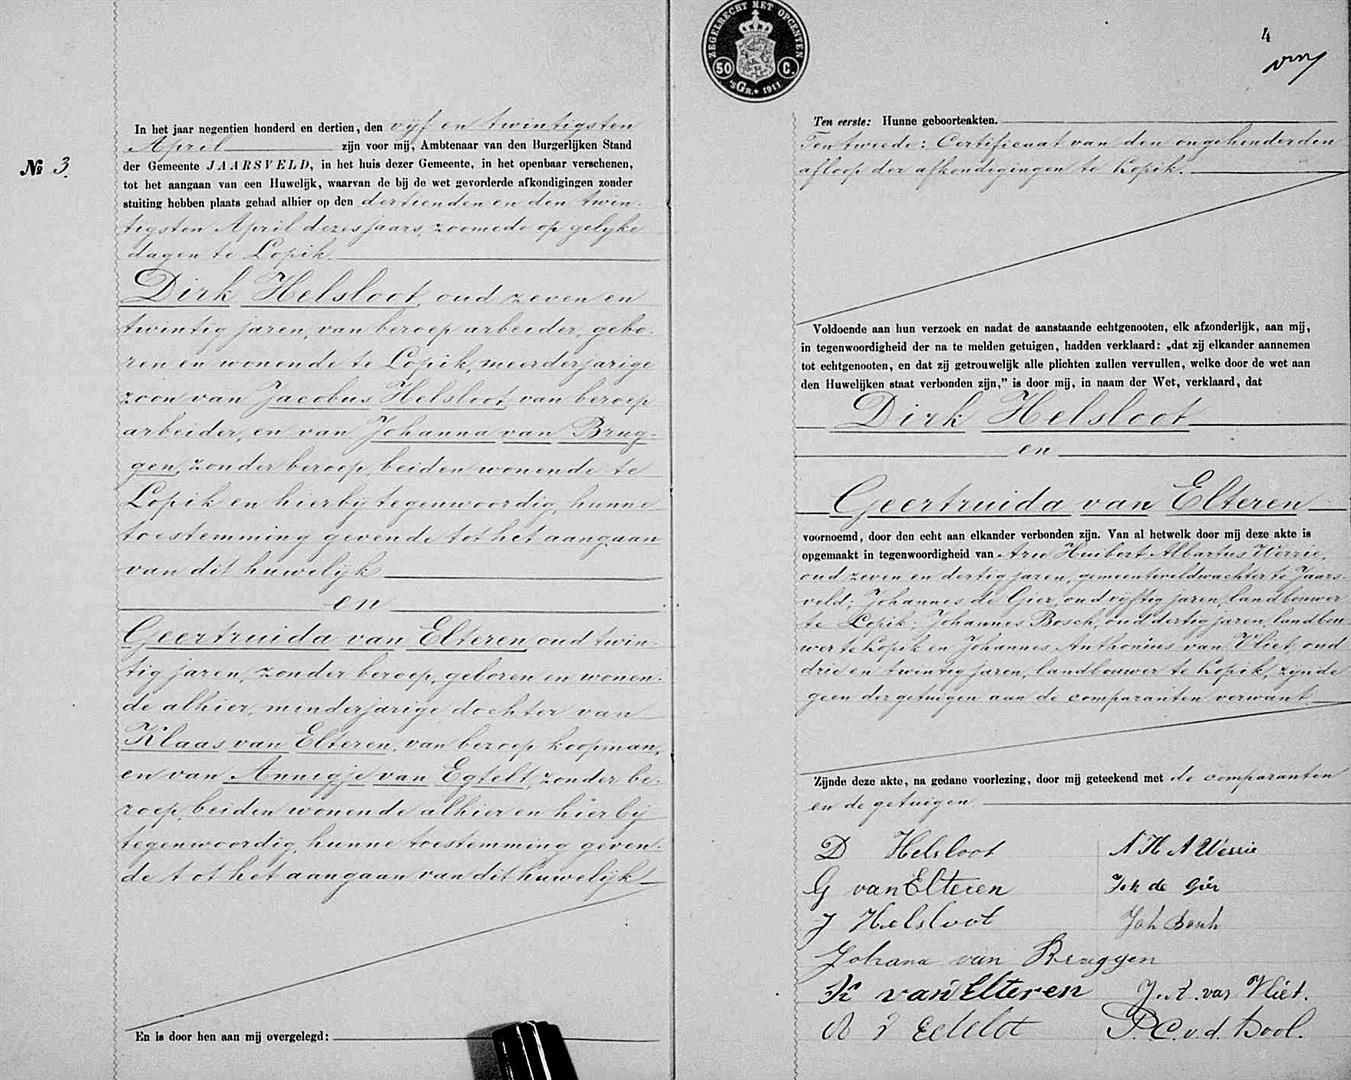 In het jaar negentien honderd en dertien, den vijf en twintigsten
April zijn voor mij, Ambtenaar van den Burgerlijken Stand
№ 3.
der Gemeente JAARSVELD, in het huis dezer Gemeente, in het openbaar verschenen,
tot het aangaan van een Huwelijk, waarvan de bij de wet gevorderde afkondigingen zonder
stuiting hebben plaats gehad alhier op den dertienden en den twin-
tigsten April dezes jaars, zoomede op gelijke
dagen te Lopik
Dirk Helsloot, oud zeven en
twintig jaren, van beroep arbeider, gebo-
ren en wonende te Lopik, meerderjarige
zoon van Jacobus Helsloot, van beroep
arbeider, en van Johanna van Brug-
gen, zonder beroep, beiden wonende te
Lopik en hierbij tegenwoordig, hunne
toestemming gevende tot het aangaan
van dit huwelijk
en
Geertruida van Elteren, oud twin-
tig jaren, zonder beroep, geboren en wonen-
de alhier, minderjarige dochter van
Klaas van Elteren, van beroep koopman,
en van Annigje van Egtelt, zonder be-
roep, beiden wonende alhier en hierbij
tegenwoordig, hunne toestemming geven-
de tot het aangaan van dit huwelijk
En is door hen aan mij overgelegd:
ZEGELRECHT MET OPCENTEN
50 C.
'sGR. 1911
4
Ten eerste: Hunne geboorteakten.
Ten tweede: Certificaat van den ongehinderden
afloop der afkondigingen te Lopik.
Voldoende aan hun verzoek en nadat de aanstaande echtgenooten, elk afzonderlijk, aan mij,
in tegenwoordigheid der na te melden getuigen, hadden verklaard: „dat zij elkander aannemen
tot echtgenooten, en dat zij getrouwelijk alle plichten zullen vervullen, welke door de wet aan
den Huwelijken staat verbonden zijn,” is door mij, in naam der Wet, verklaard, dat
Dirk Helsloot
en
Geertruida van Elteren
voornoemd, door den echt aan elkander verbonden zijn. Van al hetwelk door mij deze akte is
opgemaakt in tegenwoordigheid van Arie Huibert Albartus Werrie,
oud zeven en dertig jaren, gemeenteveldwachter te Jaars-
veld; Johannes de Gier, oud vijftig jaren, landbouwer
te Lopik; Johannes Bosch, oud dertig jaren, landbou-
wer te Lopik en Johannes Anthonius van Vliet, oud
drie en twintig jaren, landbouwer te Lopik, zijnde
geen der getuigen aan de comparanten verwant
Zijnde deze akte, na gedane voorlezing, door mij geteekend met de comparanten
en de getuigen
D Helsloot
A H A Werrie
G van Elteren
Joh de Gier
J Helsloot
Joh Bosch
Johana van Bruggen
K van Elteren
J. A. van Vliet.
P. C. v. d. Bool.